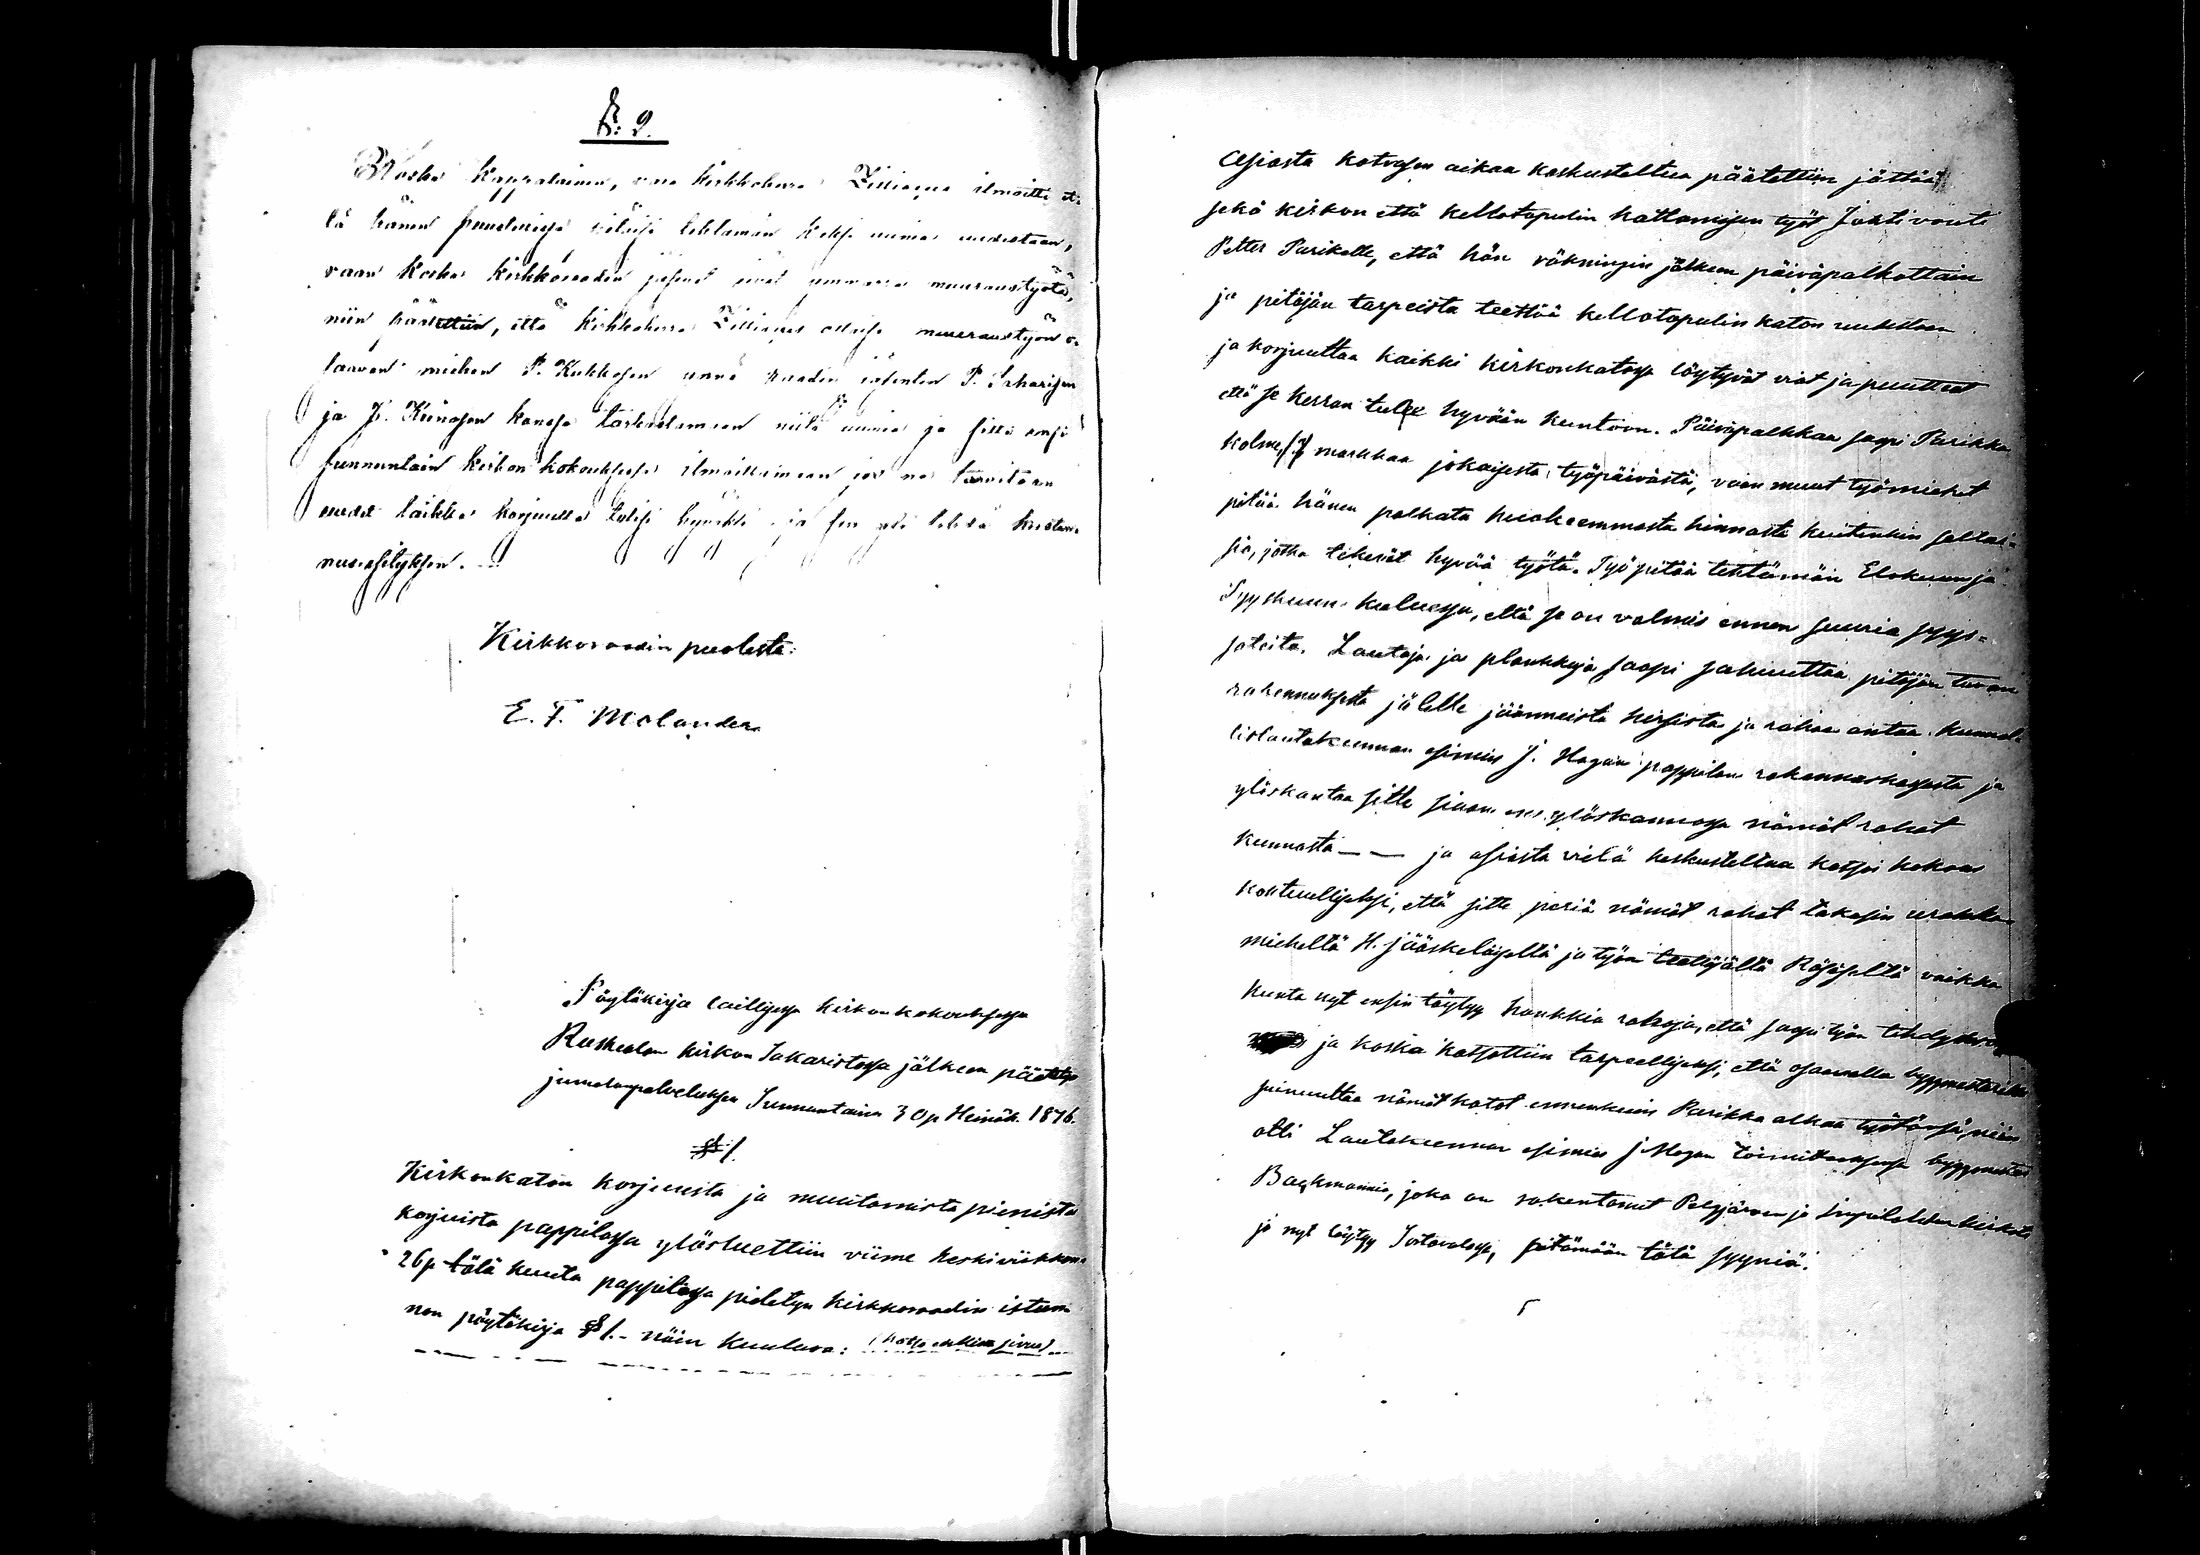 §: 2.
Koska Kappalainen, vara kirkkoherra Zilliacus ilmoitti et-
tä hänen huoneissa tulisi tehtämän kaksi uunia uudestaan,
vaan koska kirkkoraadin jäsenet eivät ymmärrä muuraustyötä,
niin päätettiin, että kirkkoherra Zilliacus ottaisi muuraustyön o-
saavan miehen P. Kukkosen ynnä raadin jäsenten P. Saharisen
ja J. Kiinasen kanssa tarkastamaan niitä uunia ja sitte ensi
sunnuntain kirkon kokouksessa ilmoittamaan jos ne tarvitaan
uudet taikka korjuulla tulisi hyväksi ja sen yli tehdä kustan-
nusesityksen.
Kirkkoraadin puolesta:
E. F. Molander
Pöytäkirja laillisessa kirkonkokouksessa
Ruskealan kirkon Sakaristossa jälkeen päätetyn
jumalanpalveluksen Sunnuntaina 30 p Heinäk. 1876.
§ 1.
Kirkonkaton korjuusta ja muutamista pienistä
korjuista pappilassa ylösluettiin viime keskiviikkona
26 p tätä kuuta pappilassa pidetyn kirkkoraadin istun-
non pöytäkirja § 1.- näin kuuluva: (katso edellinen sivu)
Asiasta kotvasen aikaa keskusteltua päätettiin jättää
sekä kirkon että kellotapulin kattamisen työt Jahtivouti
Petter Parikalle, että hän räkningin jälkeen päiväpalkottain
ja pitäjän tarpeista teettää kellotapulin katon uudestaan
ja korjuuttaa kaikki kirkonkatossa löytyvät viat ja puutteet
että se kerran tulee hyvään kuntoon. Päiväpalkkaa saapi Parikka
kolme (3) markkaa jokaisesta työpäivästä, vaan muut työmiehet
pitää hänen palkata huokeemmasta hinnasta kuitenkin sellai-
sia, jotka tekevät hyvää työtä. Työ pitää tehtämän Elokuun ja
Syyskuun kuluessa, että se on valmis ennen suuria syys-
sateita. Lautoja ja plankkuja saapi sahuuttaa pitäjän tuvan
rakennuksesta jälelle jääneistä hirsistä ja rahaa antaa kunnal-
lislautakunnan esimies J. Hagan pappilan rakennuskassasta ja
ylöskantaa sitte siaan ylöskannossa nämät rahat
kunnasta — — ja asiasta vielä keskusteltua katsoi kokous
kohtuulliseksi, että sitte periä nämät rahat takasin urakka-
mieheltä H. Jääskeläiseltä ja työn teettäjältä Räsäseltä vaikka
kunta nyt ensin täytyy hankkia rahoja, että saapi työn tehdyksi
ja koska katsottiin tarpeelliseksi, että osaavalla byggmestarilla
syynuuttaa nämät katot ennenkuin Parikka alkaa työtänsä, niin
otti Lautakunnan esimies J Hagan toimittaaksensa byggmestari
Backmannia, joka on rakentanut Pelgjärven ja Impilahden kirkot
ja nyt löytyy Sortavalassa, pitämään tätä syyniä.